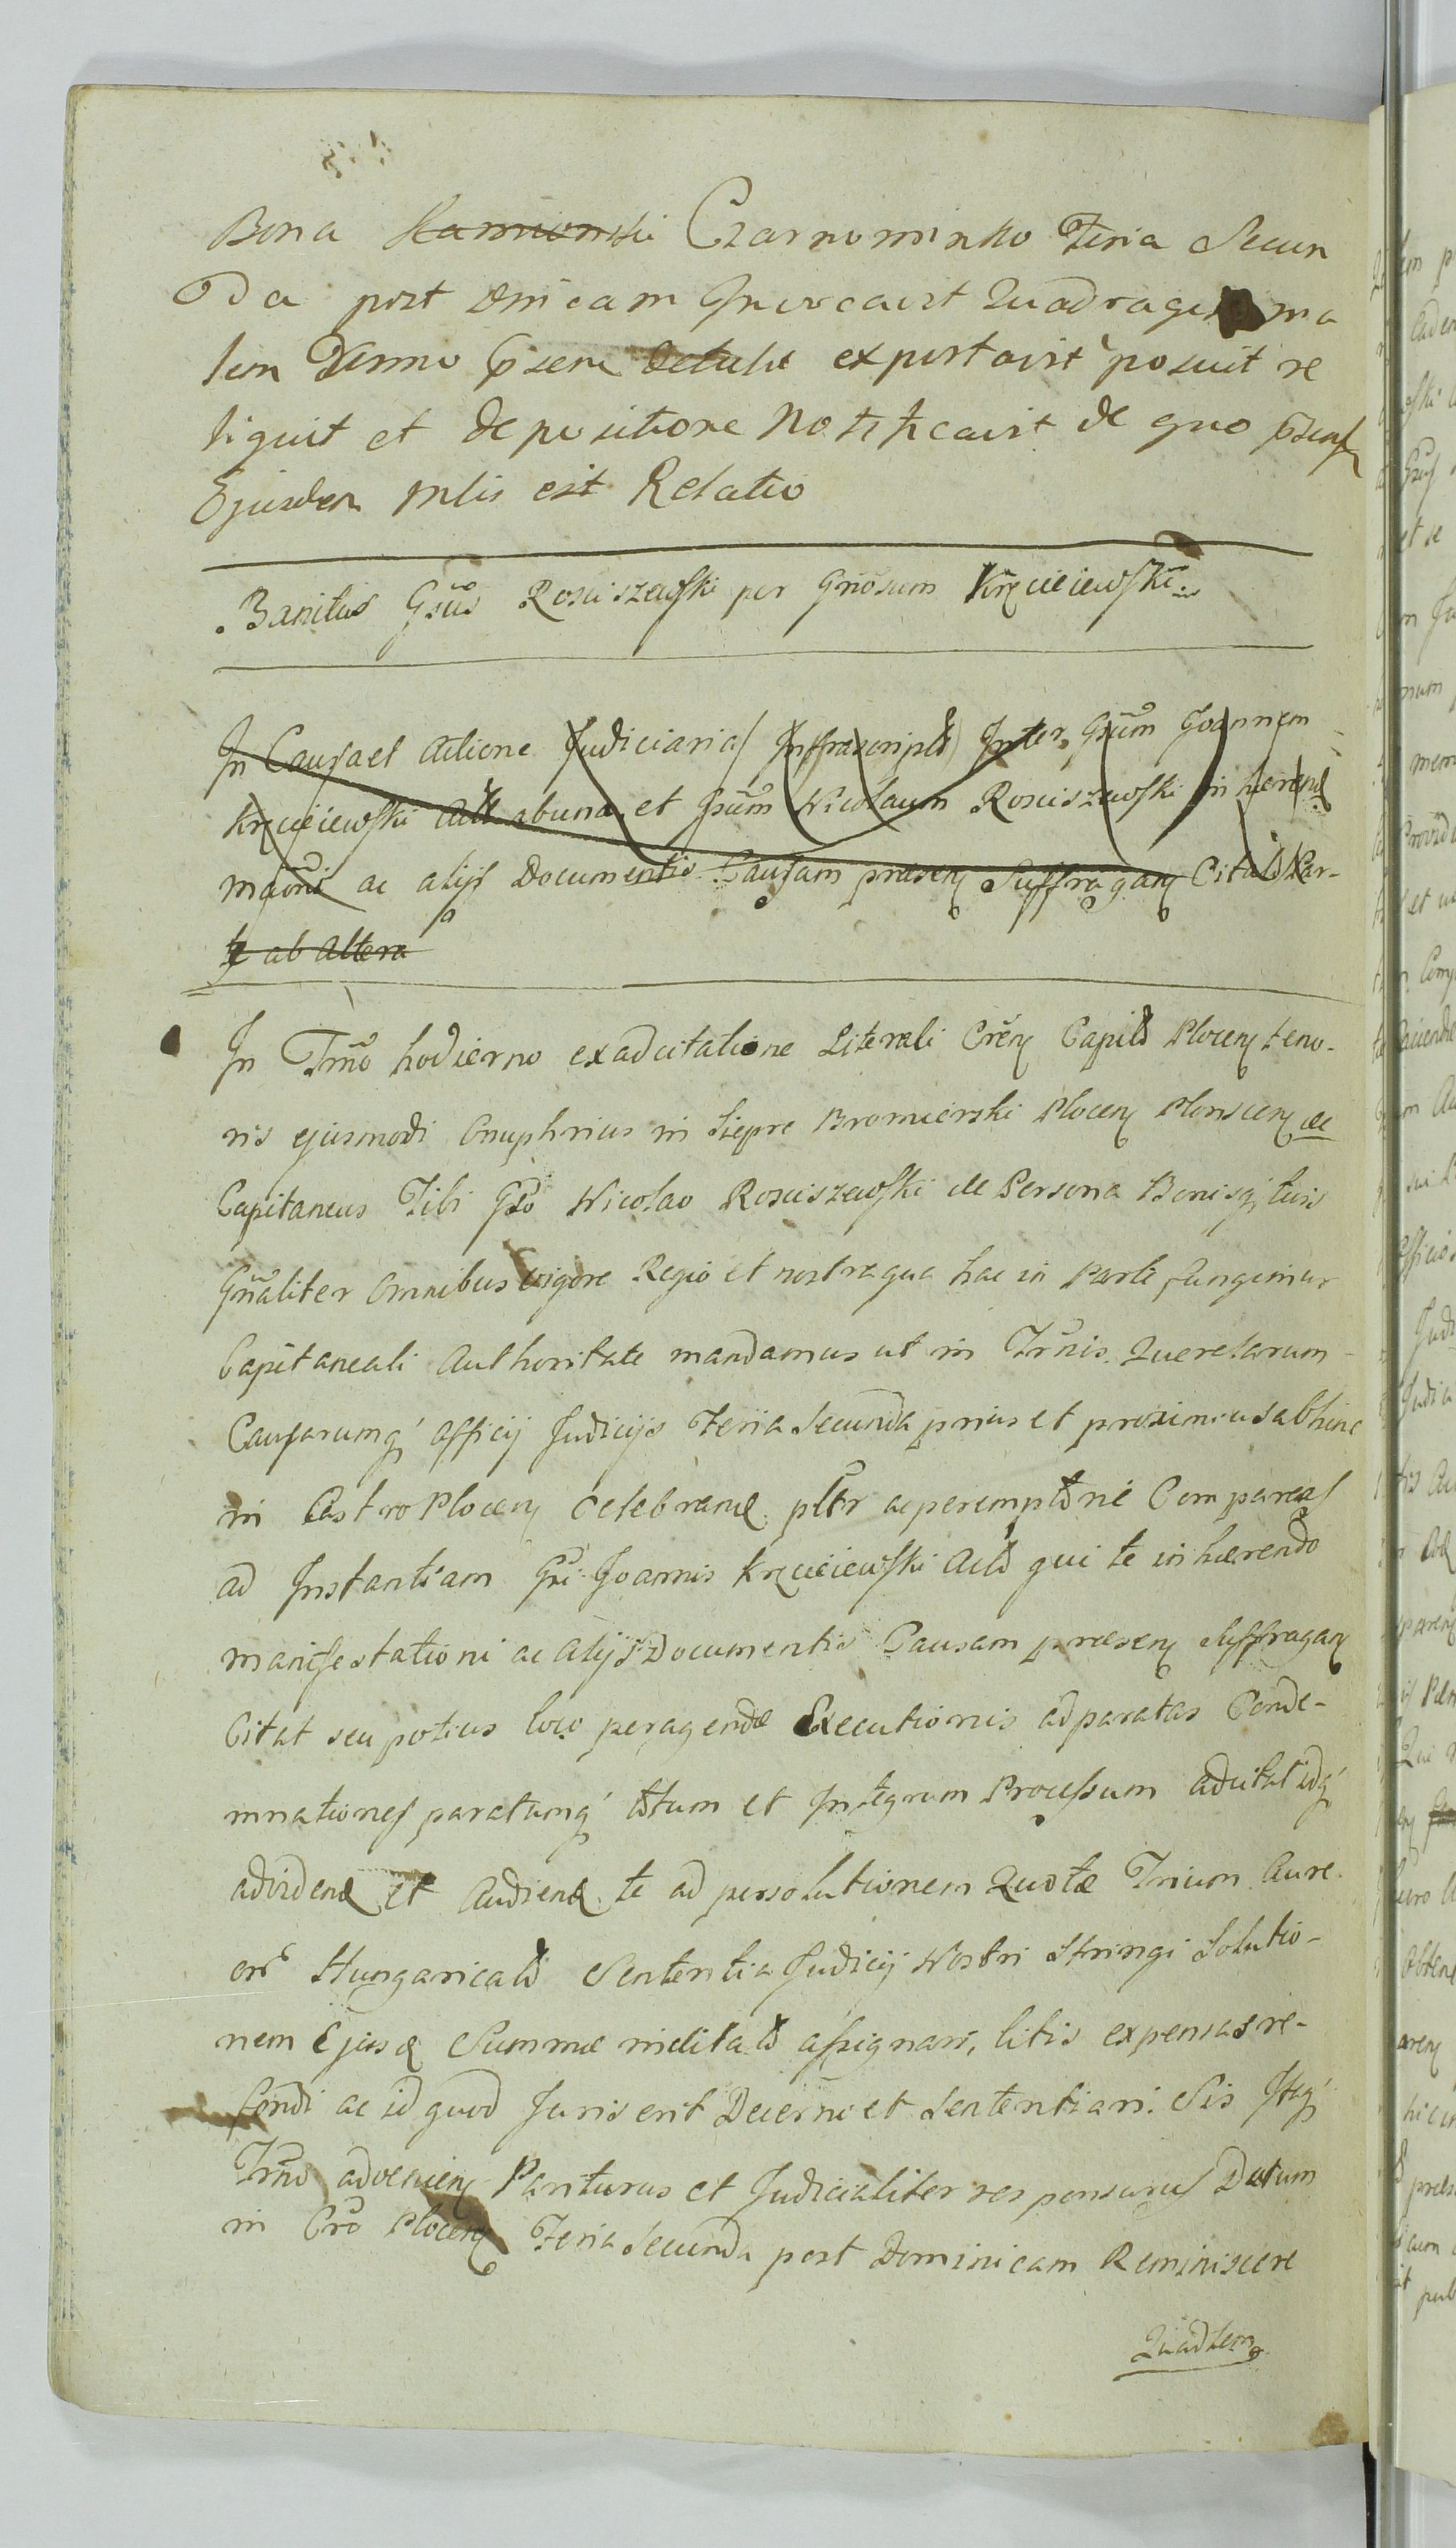 Bona Kamionski Czarnominko Feria Secun
da post Dnicam Invocavit Quadragesima
lem Anno Psenti detulit exportavit posuit re
liquit et de positione Notificavit de quo psens
Ejusdem Mlis est Relatio
Banitus Gsus Rosciszewski per Gnosum Kręcieiewski
In Causa et Actione Judiciaria Infrascripta Inter Gsum Joannem
Kręcieiewski Actt abuna et Gsum Nicolaum Rosciszewski inhærend
maoni ac alijs Documentis Causam præsen Suffragan Citatt Par-
te ab Altera
In Trno hodierno exadcitatione Literali Cren Capitt Plocen teno-
ris ejusmodi Onuphrius in Siepre Bromierski Plocen Plonscen &c
Capitaneus Tibi Gso Nicolao Rosciszewski de Persona Bonisq tuis
Gnaliter Omnibus vigore Regio et nostra qua hac in Parte fungimur
Capitaneali Authoritate mandamus ut in Trnis Querelarum
Causarumq Officij Judicijs Feria Secunda prius et proximius abhinc
in Castro Plocen Celebrand pltr ac peremptorie Compareas
ad Instantiam Gsi Joannis Kręcieiewski Actt qui te inhærendo
manifestationi ac Alijs Documentis Causam præsen Suffragan
Citat seu potius loco peragendæ Executionis ad paratas Conde-
mnationes paratumq totum et Integrum Processum adcitat idq
advidend et Audiend te ad persolutionem Quotæ Trium Aure
or Hungaricalt Sententia Judicij Nostri Stringi Solutio-
nem Ejusd Summæ indilatt assignari, litis expensas re-
fundi ac id quod Juris erit Decerni et Sententiari. Sis Itaq
Trno advenien Pariturus et Judicialiter responsurus Datum
in Cro Plocen Feria Secunda post Dominicam Reminiscere
Quadlem